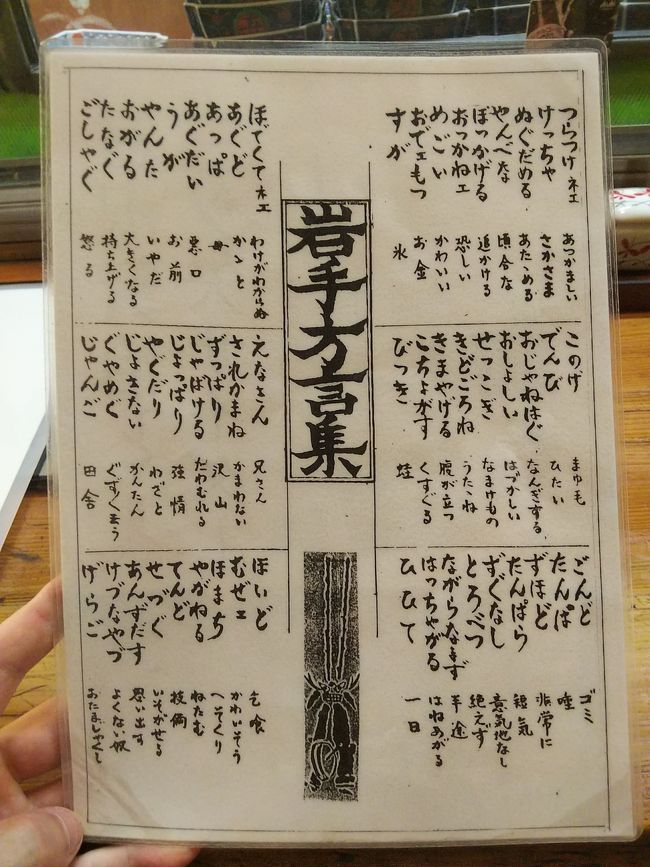 つらつけネエ
けっちゃ
ぬぐだめる
やんべな
ぼっかげる
おっかねエ
めごい
おでエもつ
すが
あつかましい
さかさま
あたゝめる
頃合な
追かける
恐しい
かわいい
お金
氷
このげ
でんび
おじゃねはぐ
おしょしい
せっこぎ
きどころね
きまやげる
こちょがす
びっき
まゆ毛
ひたい
なんぎする
はづかしい
なまけもの
うたゝね
腹が立つ
くすぐる
蛙
ごんど
たんぱ
ずほど
たんぱら
ずぐなし
とろぺつ
ながらなまず
はっちゃがる
ひひて
ゴミ
唾
非常に
短気
意気地なし
絶えず
半途
はねあがる
一日
岩手方言集
ほでくてネエ
あぐど
あっぱ
あぐだい
うが
やんた
おがる
たなぐ
ごしゃぐ
わけがわからぬ
かゝと
母
悪口
お前
いやだ
大きくなる
持ち上げる
怒る
えなさん
されかまね
ずっぱり
じゃばける
じょっぱり
やぐだり
じょさない
ぐやめぐ
じゃんご
兄さん
かまわない
沢山
だわむれる
強情
わざと
かんたん
ぐずぐず云う
田舎
ほいど
むぜエ
ほまち
やがねる
てんど
せづぐ
あんずだす
けづなやづ
げらご
乞食
かわいそう
へそくり
ねたむ
技倆
いそがせる
思い出す
よくない奴
おたまじゃくし